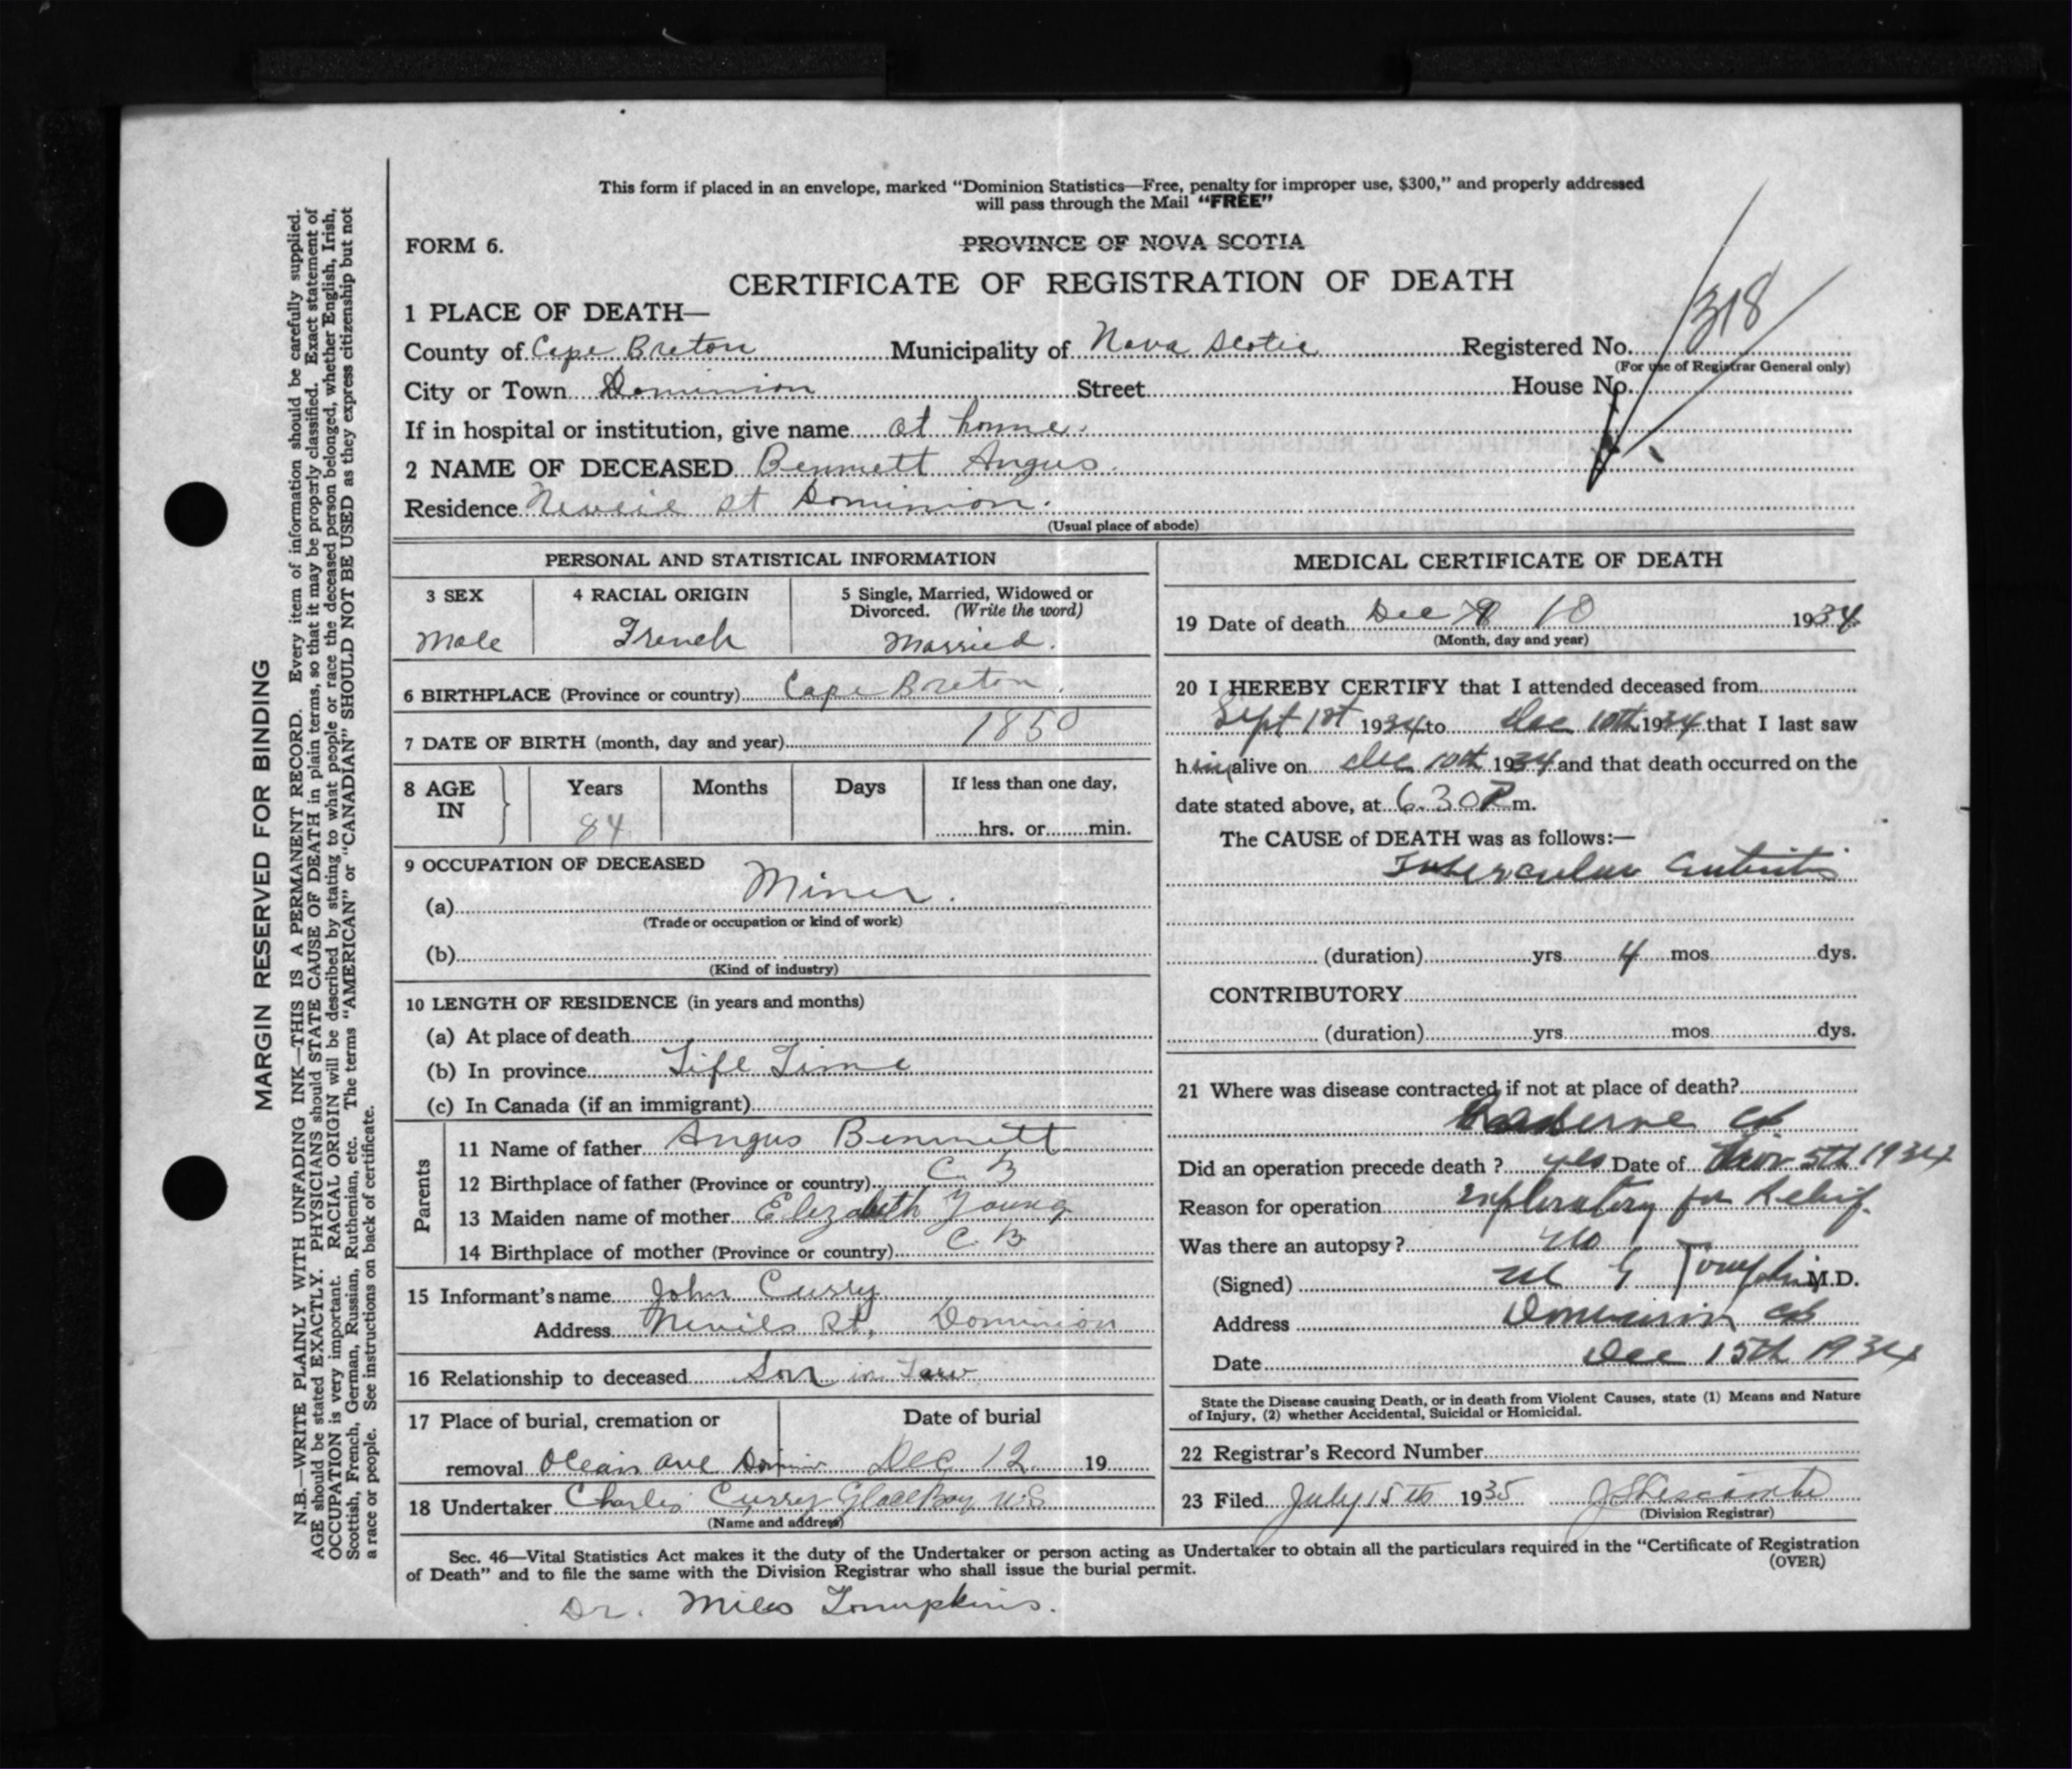 This form if placed in an envelope, marked "Dominion Statistics—Free, penalty for improper use, $300," and properly addressed
will pass through the Mail "FREE"
FORM 6.
PROVINCE OF NOVA SCOTIA
CERTIFICATE OF REGISTRATION OF DEATH
1 PLACE OF DEATH—
County of Cape Breton Municipality of Nova Scotia Registered No. 1318
(For use of Registrar General only)
City or Town Dominion Street House No.
If in hospital or institution, give name at home.
2 NAME OF DECEASED Bennett Angus.
Residence St Dominion.
(Usual place of abode)
PERSONAL AND STATISTICAL INFORMATION
3 SEX 4 RACIAL ORIGIN 5 Single, Married, Widowed or
Divorced. (Write the word)
Male French Married.
6 BIRTHPLACE (Province or country) Cape Breton.
7 DATE OF BIRTH (month, day and year) 1850
8 AGE IN Years Months Days If less than one day,
84 hrs. or min.
9 OCCUPATION OF DECEASED
(a) Miner.
(Trade or occupation or kind of work)
(b)
(Kind of industry)
10 LENGTH OF RESIDENCE (in years and months)
(a) At place of death
(b) In province Life Time
(c) In Canada (if an immigrant)
Parents
11 Name of father Angus Bennett
12 Birthplace of father (Province or country) C. B
13 Maiden name of mother Elizabeth Young
14 Birthplace of mother (Province or country) C. B
15 Informant's name John Curry
Address Nevils St, Dominion
16 Relationship to deceased Son in Law
17 Place of burial, cremation or Date of burial
removal Ocean Ave Dec 12 19
18 Undertaker Charles Curry Glace Bay N.S
(Name and address)
MEDICAL CERTIFICATE OF DEATH
19 Date of death Dec 10 1934
(Month, day and year)
20 I HEREBY CERTIFY that I attended deceased from
Sept 1st 1934 to Dec 10th 1934 that I last saw
him alive on Dec 10th 1934 and that death occurred on the
date stated above, at 6.30 P m.
The CAUSE of DEATH was as follows:—
Tubercular Enteritis
(duration) yrs. 4 mos. dys.
CONTRIBUTORY
(duration) yrs. mos. dys.
21 Where was disease contracted, if not at place of death?
CB
Did an operation precede death? yes Date of Nov 5th 1934
Reason for operation exploratory for Relief.
Was there an autopsy? No
(Signed) M G Tompkins M.D.
Address Dominion CB
Date Dec 15th 1934
State the Disease causing Death, or in death from Violent Causes, state (1) Means and Nature
of Injury, (2) whether Accidental, Suicidal or Homicidal.
22 Registrar's Record Number
23 Filed July 15th 1935
(Division Registrar)
Sec. 46—Vital Statistics Act makes it the duty of the Undertaker or person acting as Undertaker to obtain all the particulars required in the "Certificate of Registration
of Death" and to file the same with the Division Registrar who shall issue the burial permit.
(OVER)
Dr. Miles Tompkins.
MARGIN RESERVED FOR BINDING
N.B.—WRITE PLAINLY WITH UNFADING INK—THIS IS A PERMANENT RECORD. Every item of information should be carefully supplied.
AGE should be stated EXACTLY. PHYSICIANS should STATE CAUSE OF DEATH in plain terms, so that it may be properly classified. Exact statement of
OCCUPATION is very important. RACIAL ORIGIN will be described by stating to what people or race the deceased person belonged, whether English, Irish,
Scottish, French, German, Russian, Ruthenian, etc. The terms "AMERICAN" or "CANADIAN" SHOULD NOT BE USED as they express citizenship but not
a race or people. See instructions on back of certificate.